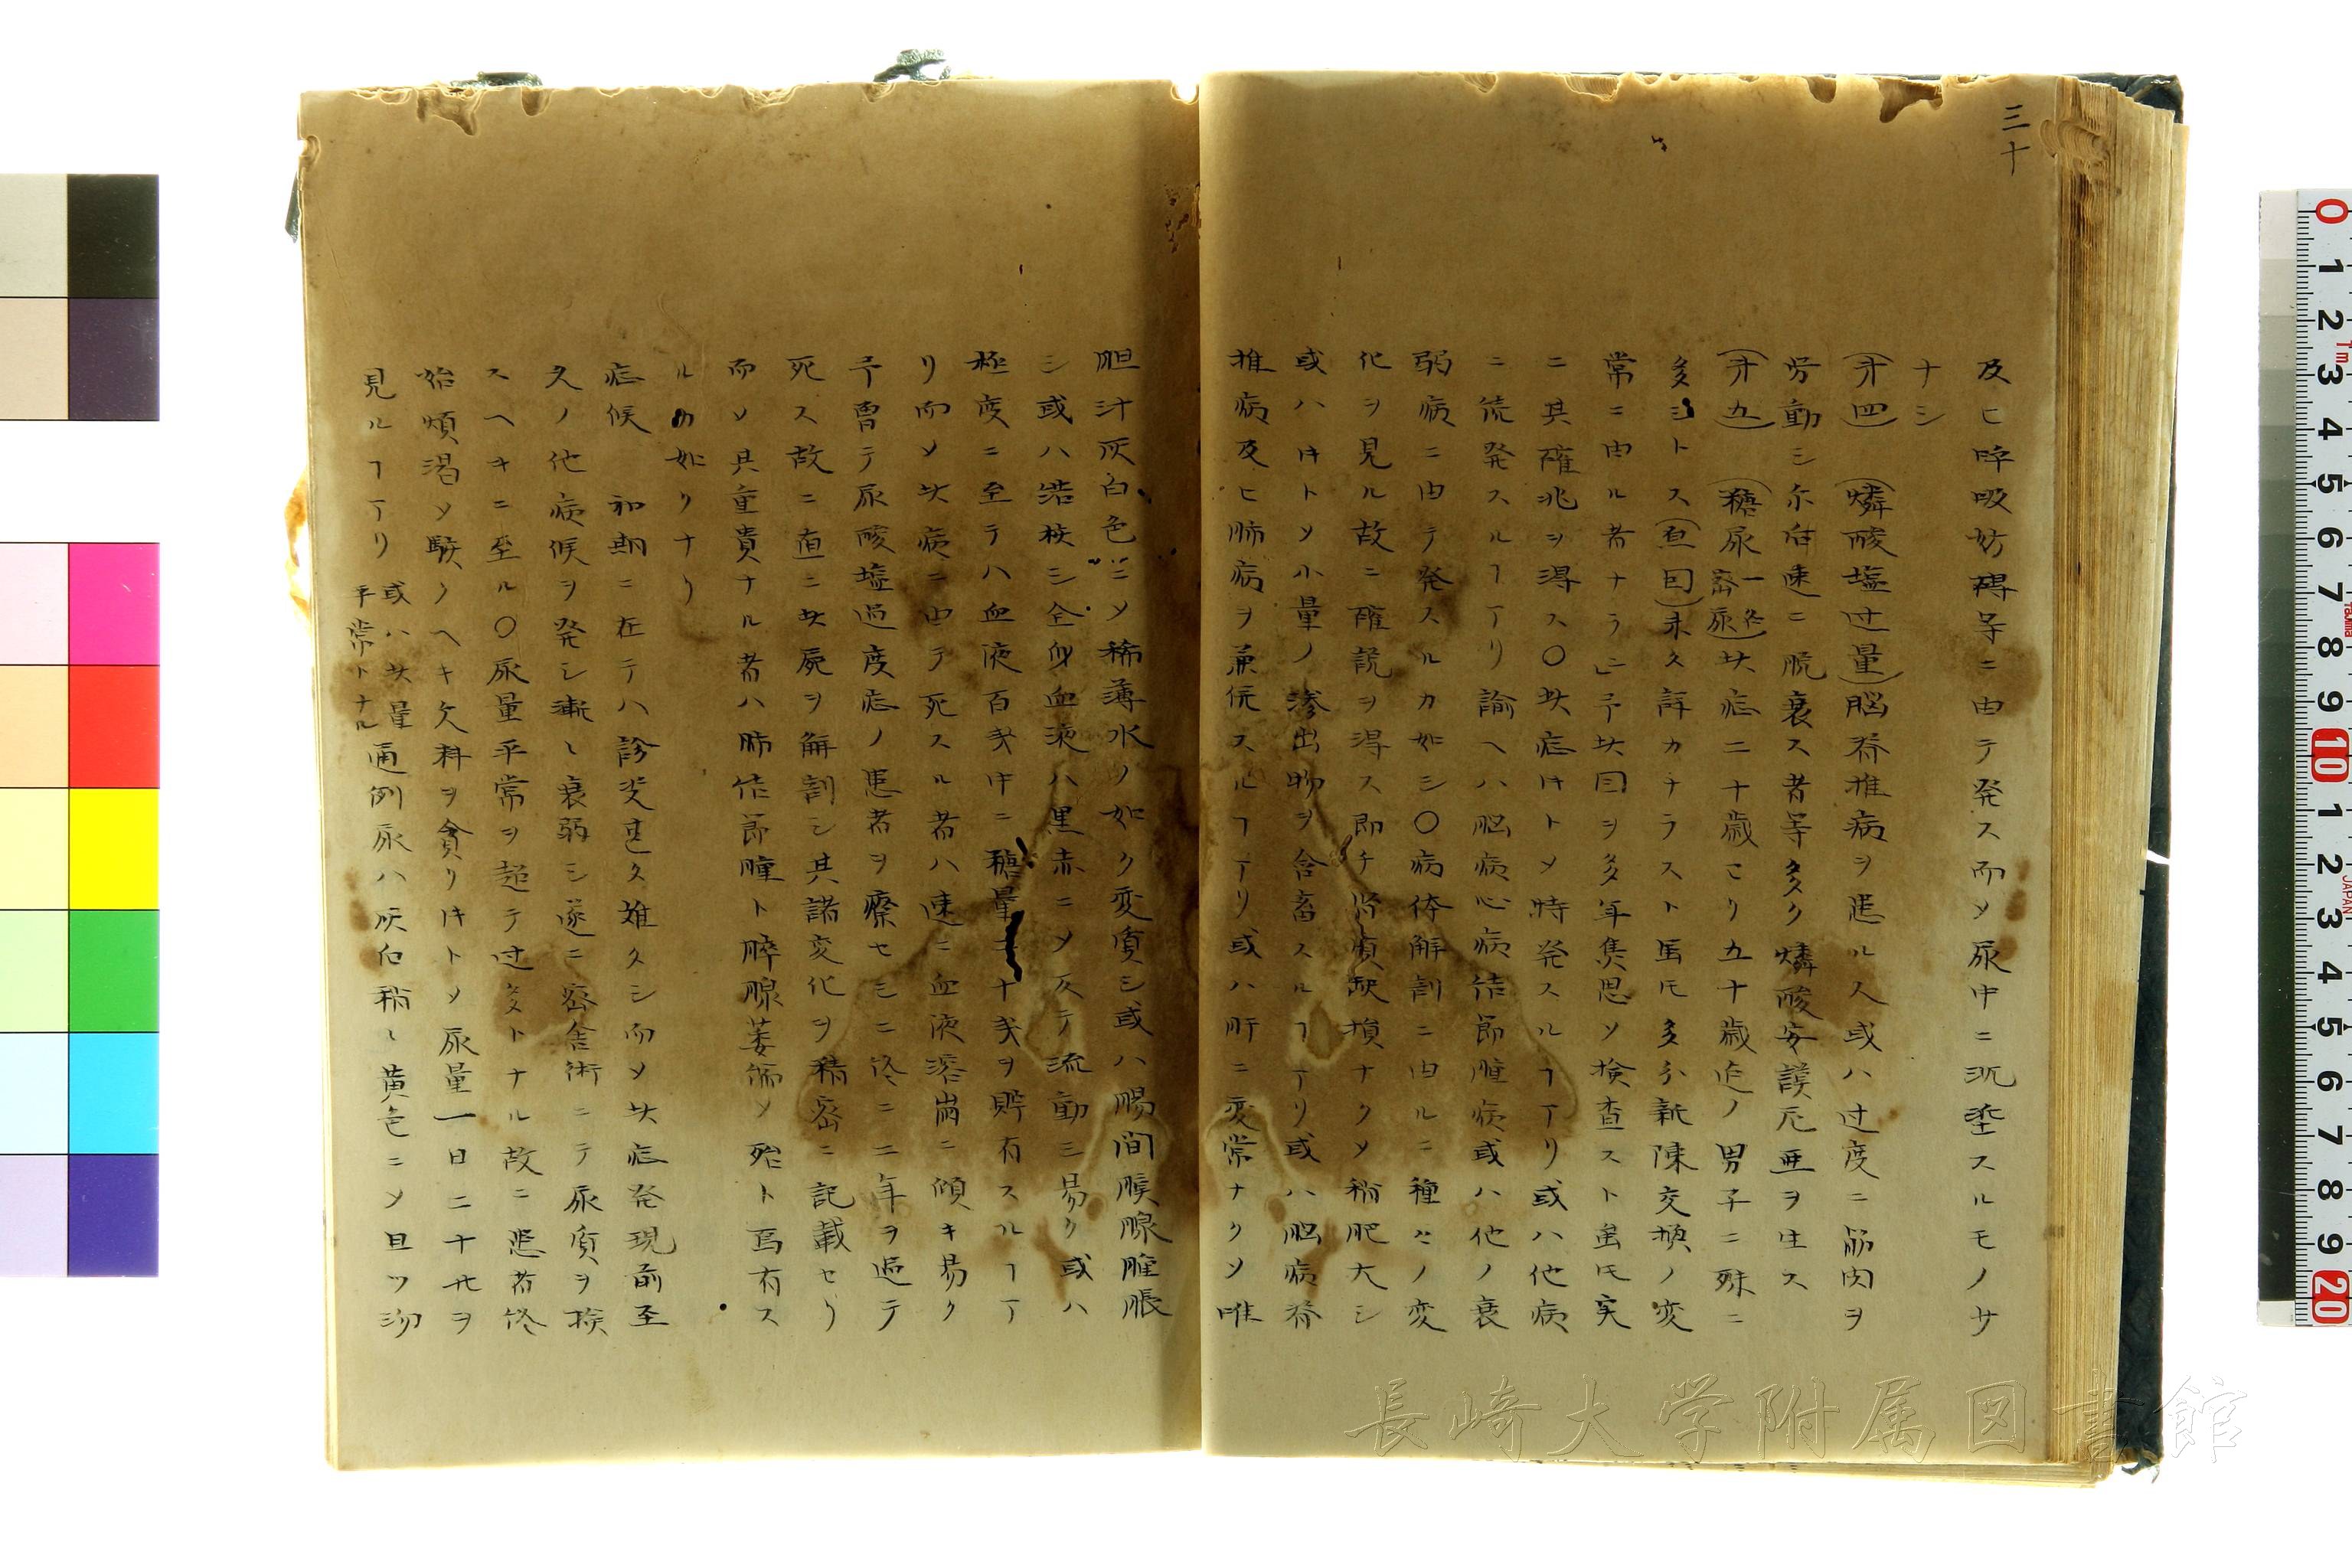 三十
及ヒ呼吸妨碍等ニ由テ発ス而ソ尿中ニ沉垽スルモノサ
ナシ
(才四)(燐酸塩过量)脳脊推病ヲ患ル人或ハ过度ニ筋肉ヲ
労動シ尓后速ニ脱衰ス者等多ク燐酸安謨尼亜ヲ生ス
(才五)(糖尿一名密尿)此症二十歳ヨリ五十歳迄ノ男子ニ殊ニ
多シトス(原因)未タ詳カナラスト虽𪜈多分新陳交換ノ変
常ニ由ル者ナラン予此因ヲ多年焦思ソ検査スト虽𪜈実
ニ其確兆ヲ得ス〇此症時トソ特発スルヿアリ或ハ他病
ニ続発スルヿアリ諭ヘハ脳病心病結節腫病或ハ他ノ衰
弱病ニ由テ発スルカ如シ〇病体解剖ニ由ルニ種々ノ変
化ヲ見ル故ニ確説ヲ得ス即チ腎質缺損ナクソ稍肥大シ
或ハ時トソ小量ノ滲出物ヲ含畜スルヿアリ或ハ脳病脊
推病及ヒ肺病ヲ兼併スルヿアリ或ハ肝ニ変常ナクソ唯
胆汁灰白色ニソ稀薄水ノ如ク変質シ或ハ腸間膜腺腫脹
シ或ハ浩枝シ全身血液ハ黒赤ニソ反テ流動シ易ク或ハ
極度ニ至テハ血液百㐧中ニ糖量二十㐧ヲ貯有スルヿア
リ而ソ此病ニ由テ死スル者ハ速ニ血液溶崩ニ傾キ易ク
予曽テ尿酸塩過度症ノ患者ヲ療セシニ終ニ二年ヲ過テ
死ス故ニ直ニ此屍ヲ解剖シ其諸変化ヲ精密ニ記載セリ
而ソ其重貴ナル者ハ肺結節腫ト膵腺萎縮ソ殆ト焉有ス
ルカ如クナリ
症候 初期ニ在テハ診断甚タ難クシ而ソ此症発現前至
久ノ他病候ヲ発シ漸々衰弱シ遂ニ密舎術ニテ尿質ヲ検
スヘキニ至ル〇尿量平常ヲ超テ过多トナル故ニ患者終
始煩渇ソ験ノヘキ欠料ヲ貪リ時トソ尿量一日二十卅ヲ
見ルヿアリ 或ハ此量平常トナル 通例尿ハ灰白稍々黄色ニソ且ツ沏